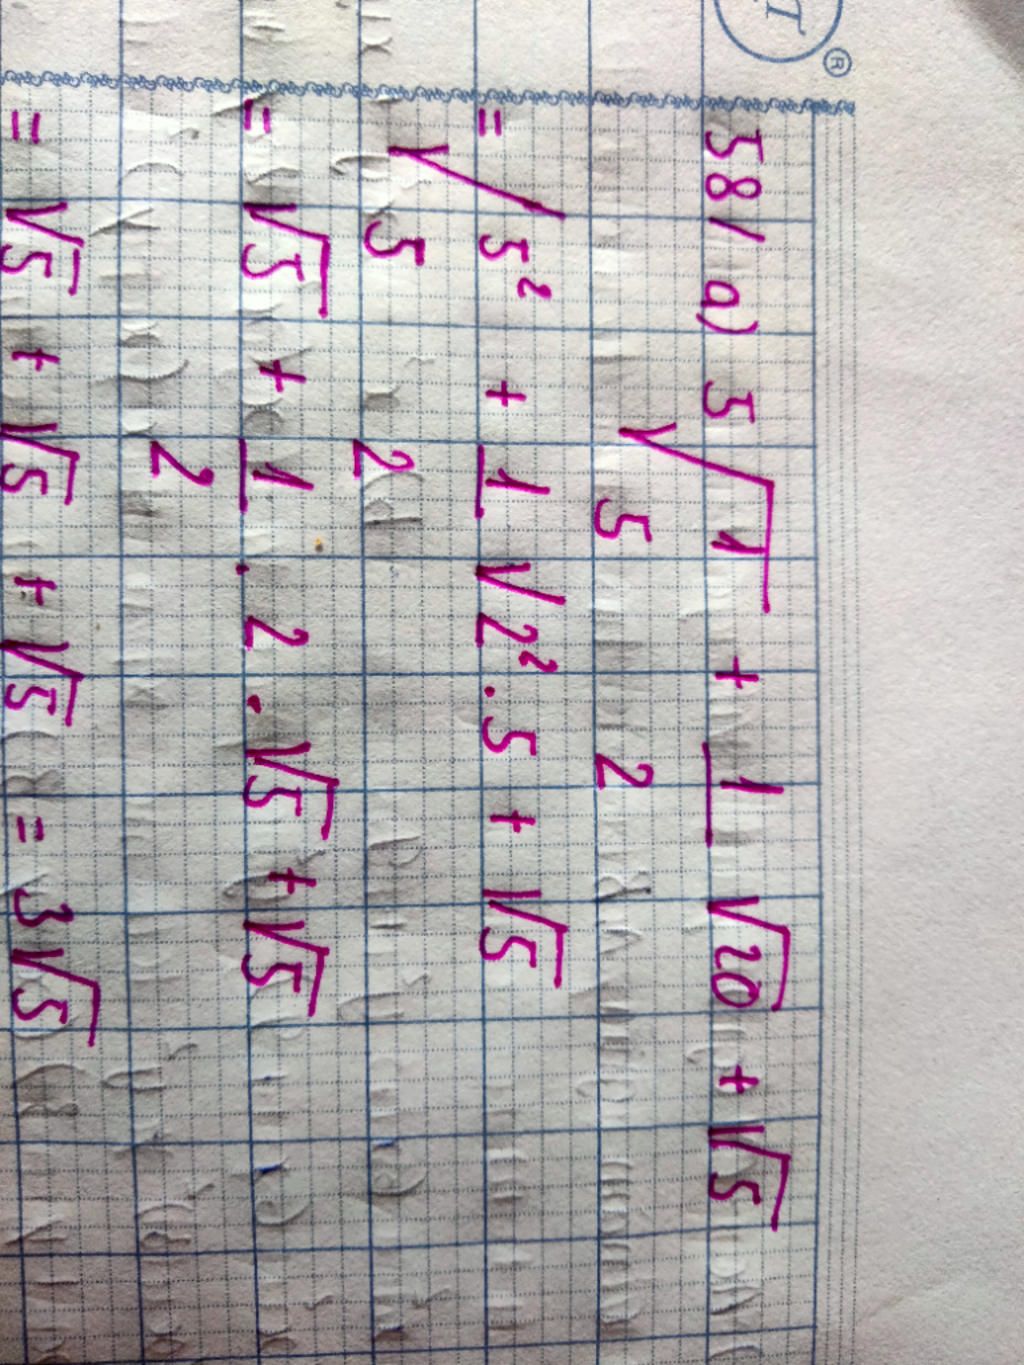 T ®
58/ a) 5√(1/5) + 1/2 √20 + √5
= √(5²/5) + 1/2 √2².5 + √5
= √5 + 1/2 . 2 . √5 + √5
= √5 + √5 + √5 = 3√5